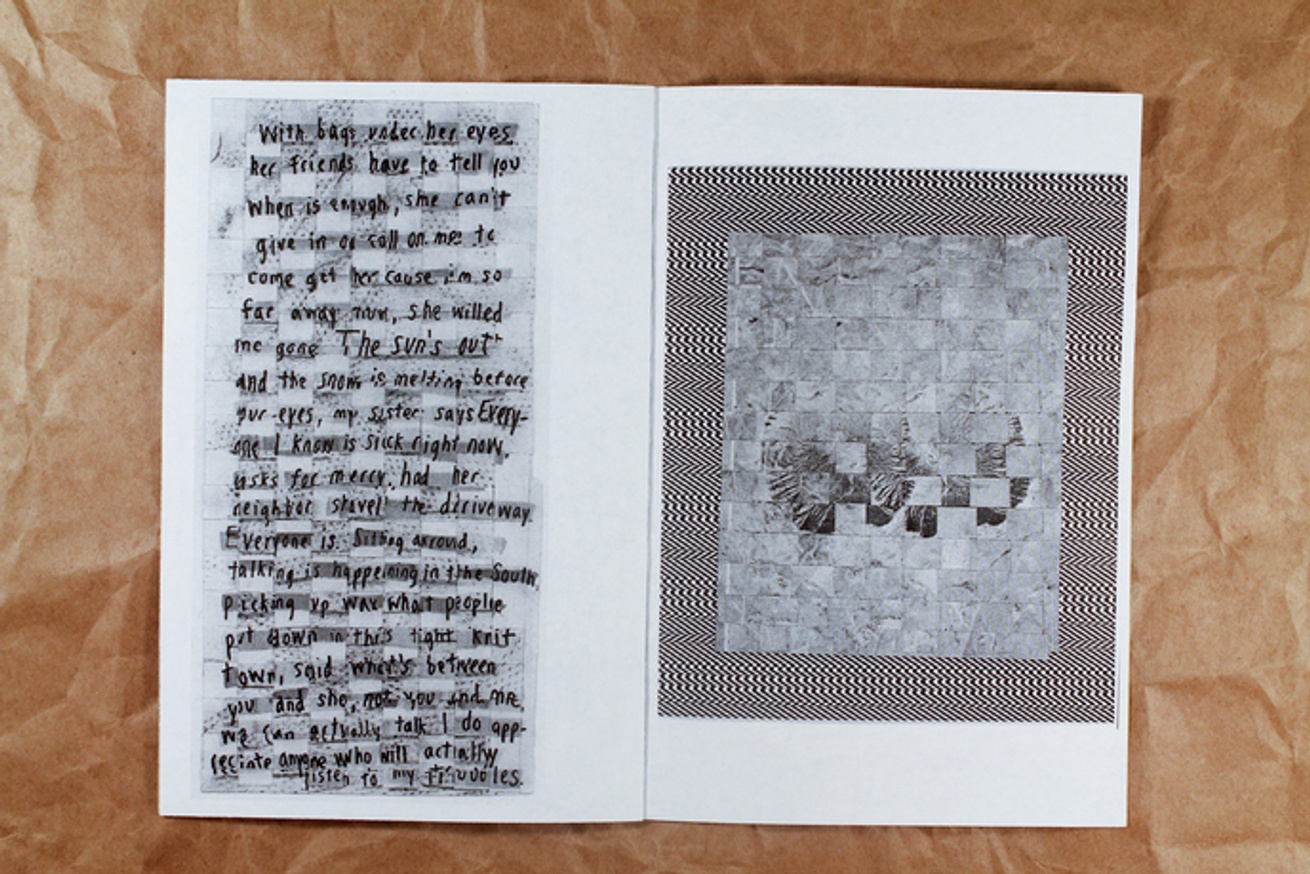 With bags under her eyes
her friends have to tell you
when is enough, she can't
give in or call on me to
come get her cause i'm so
far away now, she willed
me gone The sun's out
and the snow is melting before
our eyes, my sister says Every-
one I know is sick right now,
asks for mercy, had her
neighbor shovel the driveway.
Everyone is sitting around,
talking is happeining in the South,
picking up wax what people
put down in this tight knit
town, said what's between
you and she, not you and me,
we can actually talk I do app-
reciate anyone who will actially
listen to my troubles.